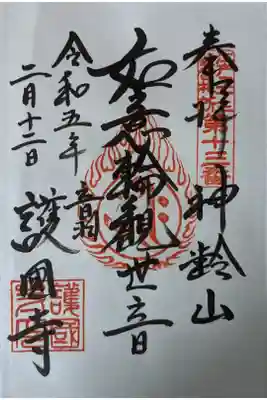 奉拝 神齢山
第十三番
如意輪観世音
音羽
護國寺
令和五年
二月十二日
護國